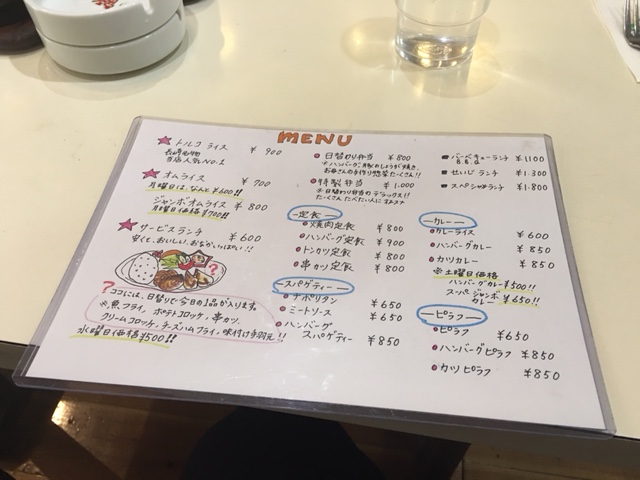 MENU
トルコ ライス ¥900
長崎名物
当店人気No.1
オムライス ¥700
月曜日は、なんと¥600!!
ジャンボオムライス ¥800
月曜日価格¥700!!
サービスランチ ¥600
安くて、おいしい、おなかいっぱい!!
?
?ココには、日替りで今日の1品が入ります。
※魚フライ、ポテトコロッケ、串カツ
クリームコロッケ、チーズハムフライ、味付け手羽元!!
水曜日価格¥500!!
日替わり弁当 ¥800
※ハンバーグ、豚のしょうが焼き、
お母さんの手作り惣菜たくさん!!
特製弁当 ¥1.000
※日替わり弁当のデラックス!!
たくさんたべたい人にオススメ
定食
焼肉定食 ¥800
ハンバーグ定食 ¥900
トンカツ定食 ¥800
串カツ定食 ¥800
スパゲティー
ナポリタン ¥650
ミートソース ¥650
ハンバーグ
スパゲティー ¥850
バーベキューランチ ¥1100
B.B.Q
せいじランチ ¥1.300
スペシャルランチ ¥1.800
カレー
カレーライス ¥600
ハンバーグカレー ¥850
カツカレー ¥850
※土曜日価格
ハンバーグカレー¥500!!
スーパージャンボ
カレー ¥650!!
ピラフ
ピラフ ¥650
ハンバーグピラフ ¥850
カツピラフ ¥850